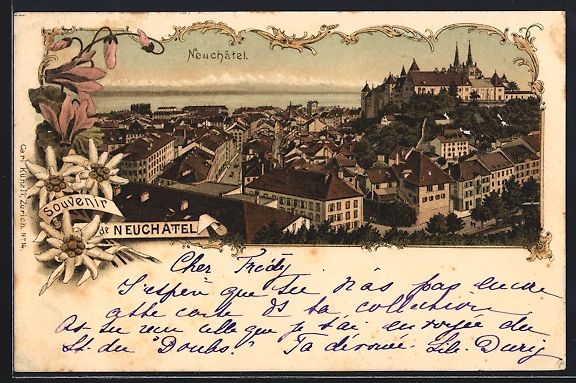 Neuchâtel.
Souvenir
de NEUCHATEL
Carl Künzli, Zürich. No
Cher Frédy
J'espère que tu n'as pas encore
cette carte ds ta collection
As tu reçu celle que je t'ai envoyée du
St. du "Doubs." Ta dévouée